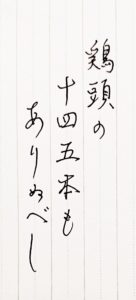 鶏頭の
十四五本も
ありぬべし